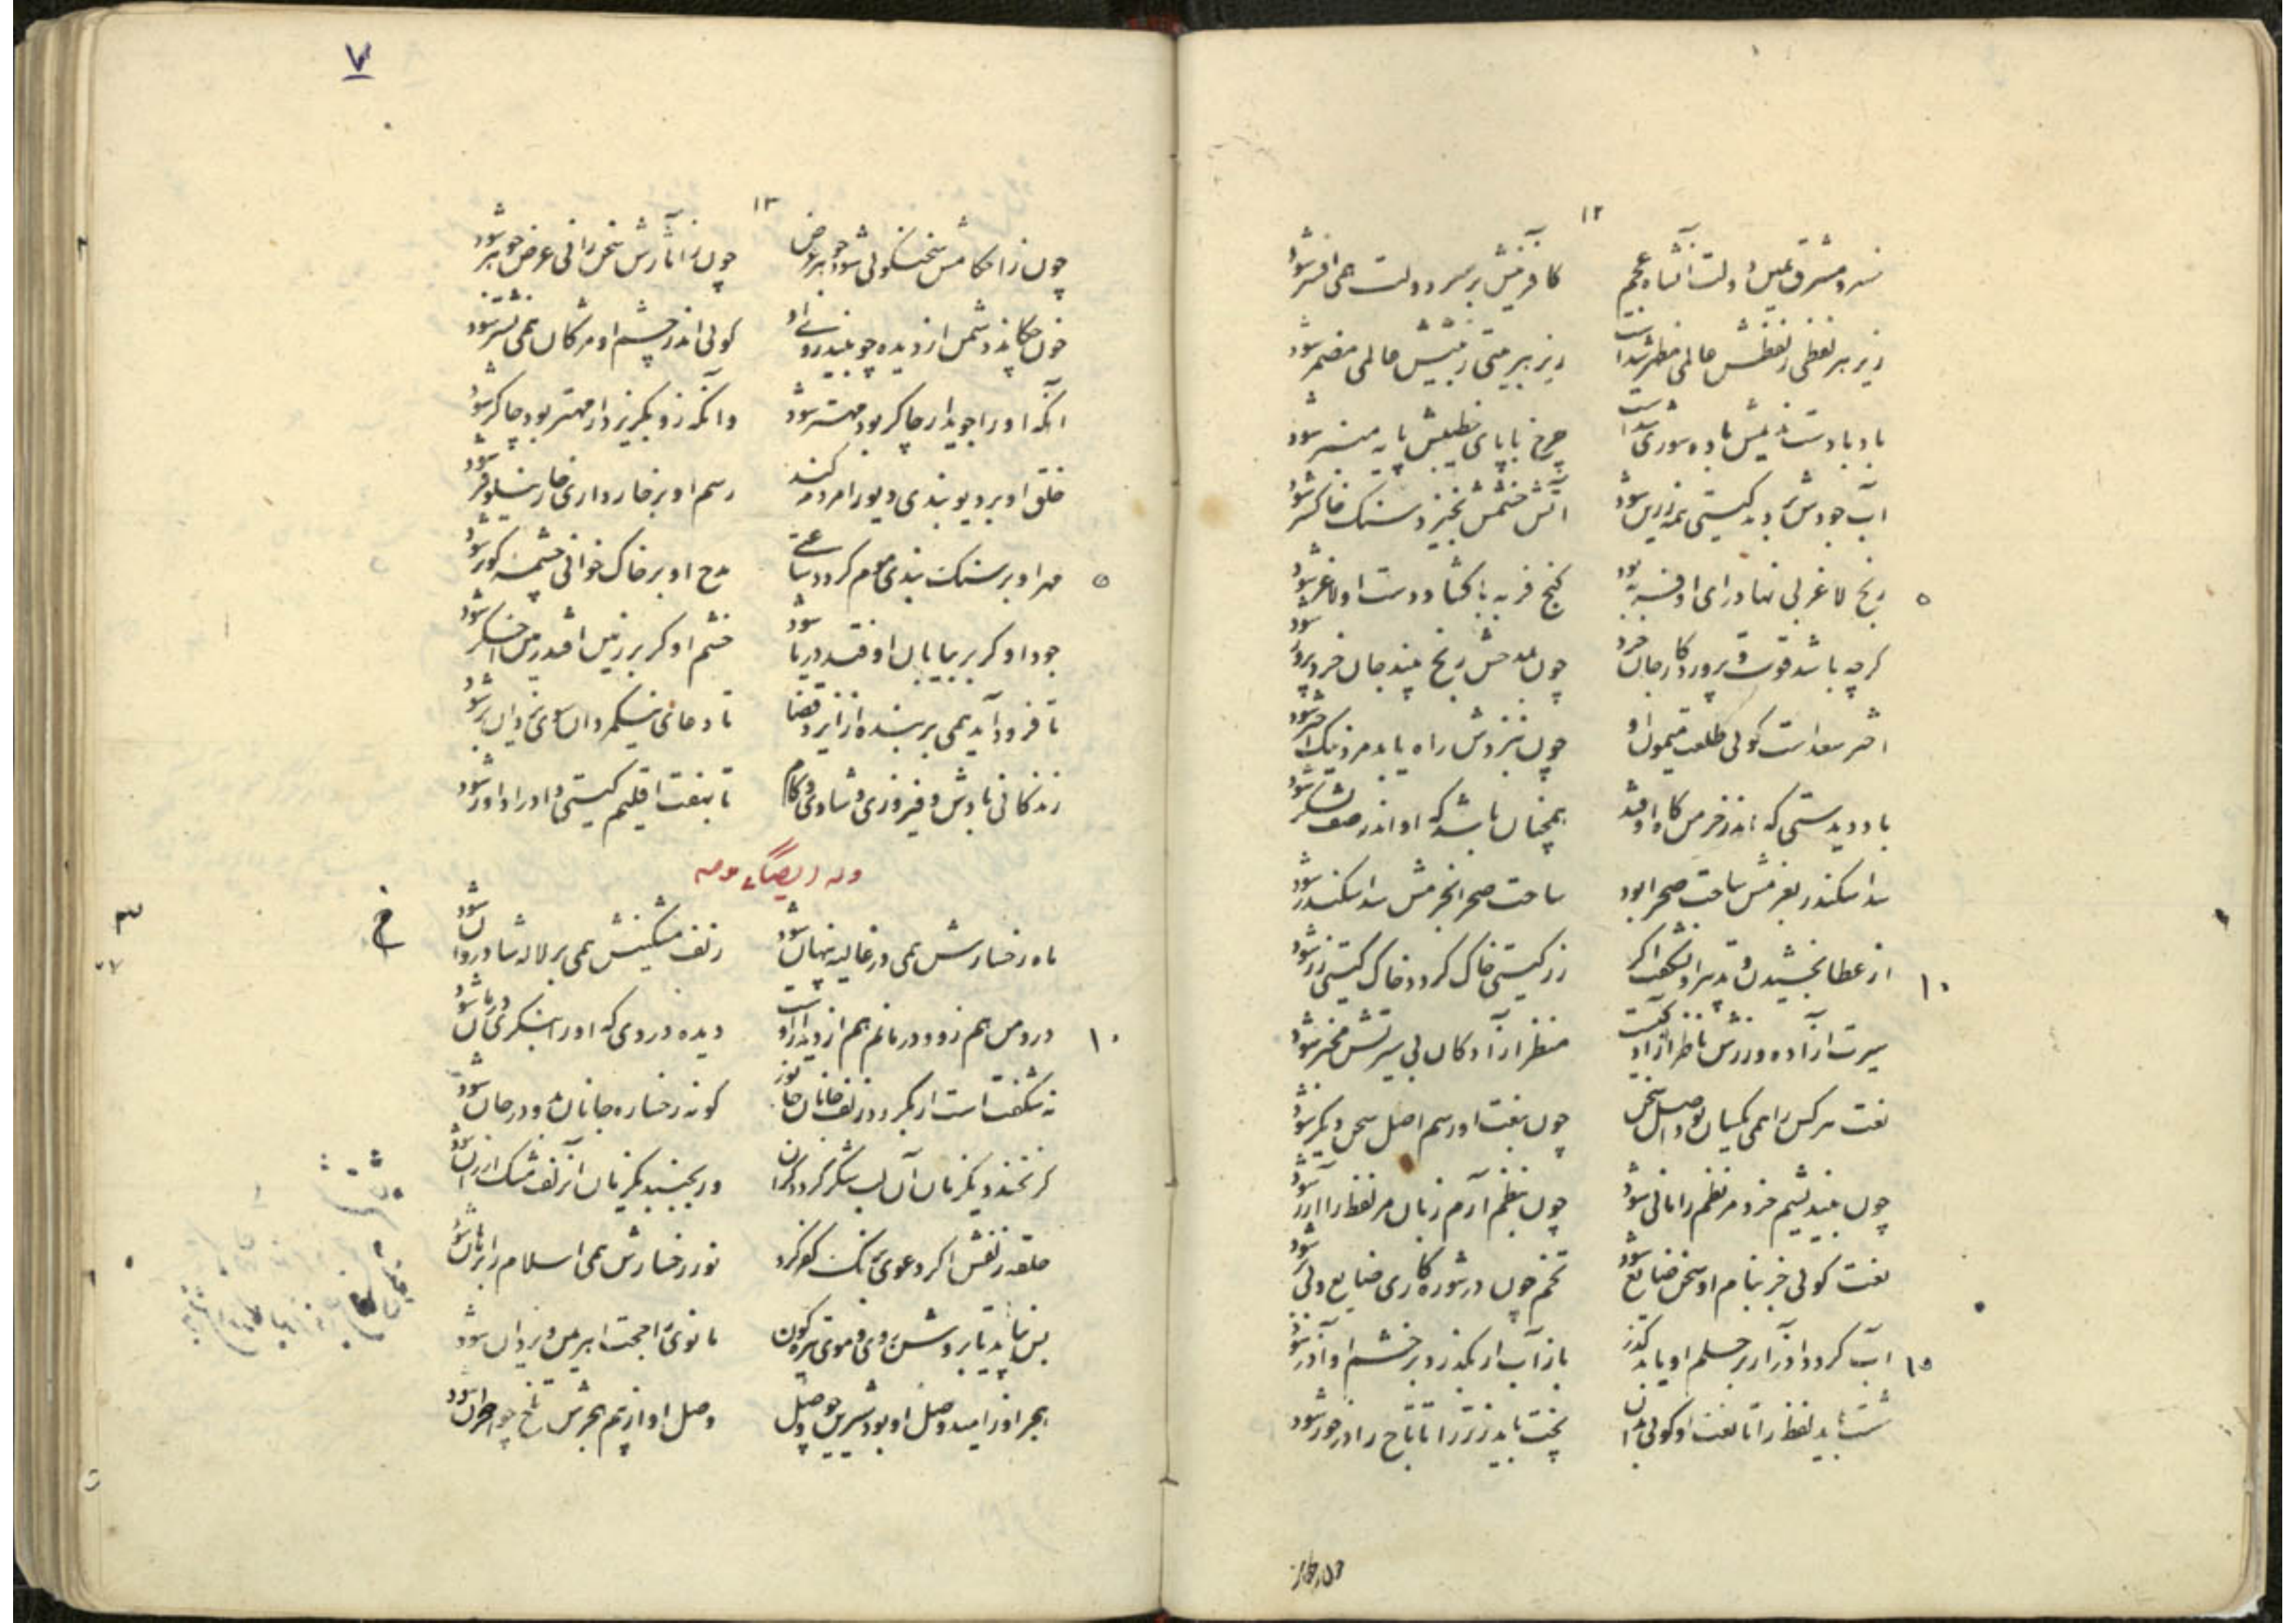 ۱۲
خسرو مشرق یمین دولت آن شاه عجم کافرینش بر سر دولت همی افسر شود
زیر هر لفظی ز لفظش عالمی مظهر شدست زیر هر بیتی ز بیتش عالمی مضمر شود
چرخ با پای خطیبش پایه منبر شود
آب جودش بردمد گیتی همه زرین شود آتش خشمش بخیزد سنک خاکستر شود
۵
رنج لاغر بی نهاد رای او فربه بود کنج فربه با کشاد دست او لاغر شود
کرچه باشد قوت و پروردکار جان خرد چون بمدحش رنج بیند جان خرد پرور شود
اختر سعد است کوئی طلعت میمون او چون بنزدش راه یابد مرد نیک اختر شود
باد دیدستی که اندر خرمن کاه اوفتد همچنان باشد که او اندر صف لشکر شود
سد اسکندر بعزمش ساحت صحرا بود ساحت صحرا بحزمش سد اسکندر شود
۱۰
از عطا بخشیدن و تدبیر او نشکفت اکر زر کیتی خاک کردد خاک کیتی زر شود
سیرت آزاده ورزش ناظر آزادکیست منظر آزادکان بی سیرتش مخبر شود
نعت هر کس را همی یکسان بود اصل سخن چون بنعت او رسم اصل سخن دیکر شود
چون بیندیشم خرد مر نظم را مانی شود چون بنظم آرم زبان مر لفظ را آزر شود
نعت کوئی جز بنام او سخن ضایع شود تخم چون در شوره کاری ضایع و بی بر شود
۱۵
آب کردد آذر ار بر حلم او یابد کذر باز آب ار بکذرد بر خشم او آذر شود
شست باید لفظ را تا نعت او کوئی بدان پخت باید زر تر را تا تاج را در خور شود
چون ز احکا
۱۳
۷
چون ز احکامش سخن کوئی شود جوهر عرض چون ز آثارش سخن رانی عرض جوهر شود
خون چکاند دشمن از دیده چو بیند روی او کوئی اندر چشم او مژکان همی نشتر شود
آنکه او را جوید ار چاکر بود مهتر شود وانکه زو بکریزد ار مهتر بود چاکر شود
خلق او بر دیو بندی دیو را مردم کند رسم او بر خار داری خار نیلوفر شود
۵
مهر او بر سنک بندی موم کردد ساعتی مدح او بر خاک خوانی چشمه کوثر شود
جود او کر بر بیابان اوفتد دریا شود خشم او کر بر زمین افتد زمین اخکر شود
تا فرود آید همی بر بنده از ایزد قضا تا دعای نیکمردان سوی یزدان بر شود
زندکانی بادش و فیروزی و شادی و کام تا بهفت اقلیم کیتی داد را داور شود
وله ایضاً یمدحه
ماه رخسارش همی در غالیه پنهان شود زلف مشکینش همی بر لاله شادروان شود
خ
۳
۱۰
درد من هم زو و درمانم هم از دیدار او دیده دردی که او را بنکری درمان شود
نه شکفت است ار بکردد زلف جانان جانور کونه رخساره جانان دو در جان شود
کر بخندد یکزمان آن لب شکر کردد کران ور بجنبد یکزمان آن زلف مشک ارزان شود
حلقه زلفش اکر دعوی بکند کفر کرد نور رخسارش همی اسلام را برهان شود
بس نپاید تا بروشن روی و موی تیره کون مانوی را حجت اهریمن و یزدان شود
هجر او ز امید وصل او بود شیرین چو وصل وصل او از بیم هجرش تلخ چون هجران شود